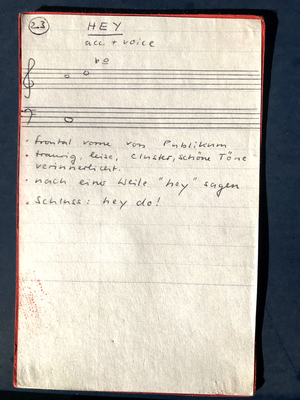 23
HEY
acc. + voice
• frontal vorne von Publikum
• traurig, leise, Cluster, schöne Töne
verinnerlicht.
• nach einer Weile "hey" sagen
• Schluss: hey do!